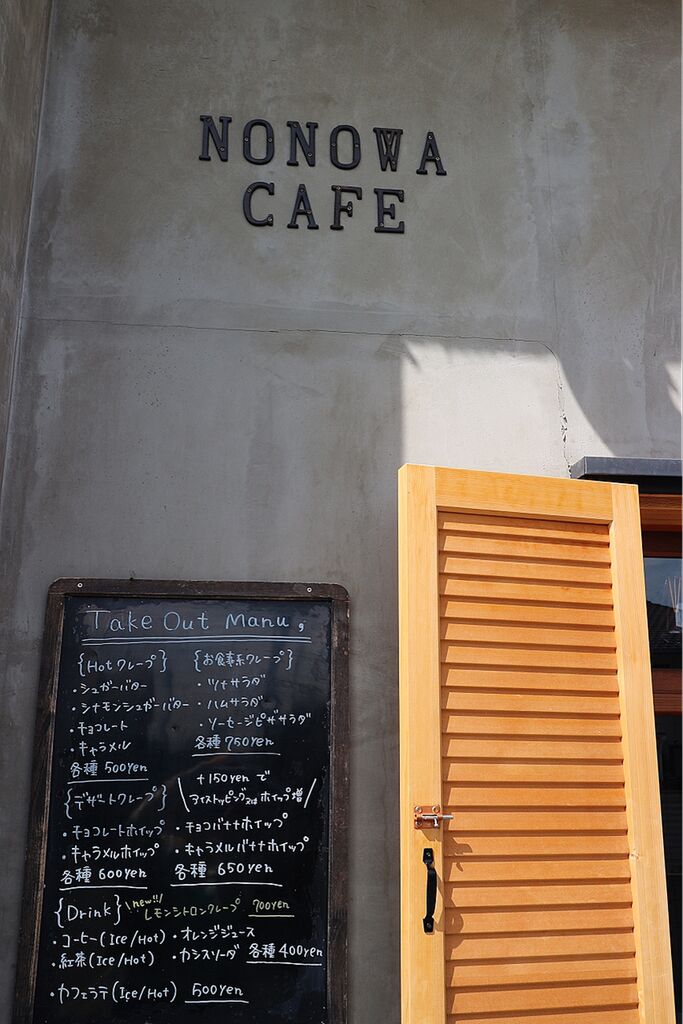 NONOWA
CAFE
Take Out Manu,
{Hotクレープ}
・シュガーバター
・シナモンシュガーバター
・チョコレート
・キャラメル
各種 500yen
{お食事系クレープ}
・ツナサラダ
・ハムサラダ
・ソーセージピザサラダ
各種 750yen
+150yen で
アイストッピング又はホイップ増
{デザートクレープ}
・チョコレートホイップ
・キャラメルホイップ
各種 600yen
・チョコバナナホイップ
・キャラメルバナナホイップ
各種 650yen
new!! レモンシトロンクレープ 700yen
{Drink}
・コーヒー(Ice/Hot)
・紅茶(Ice/Hot)
・オレンジジュース
・カシスソーダ 各種400yen
・カフェラテ(Ice/Hot) 500yen